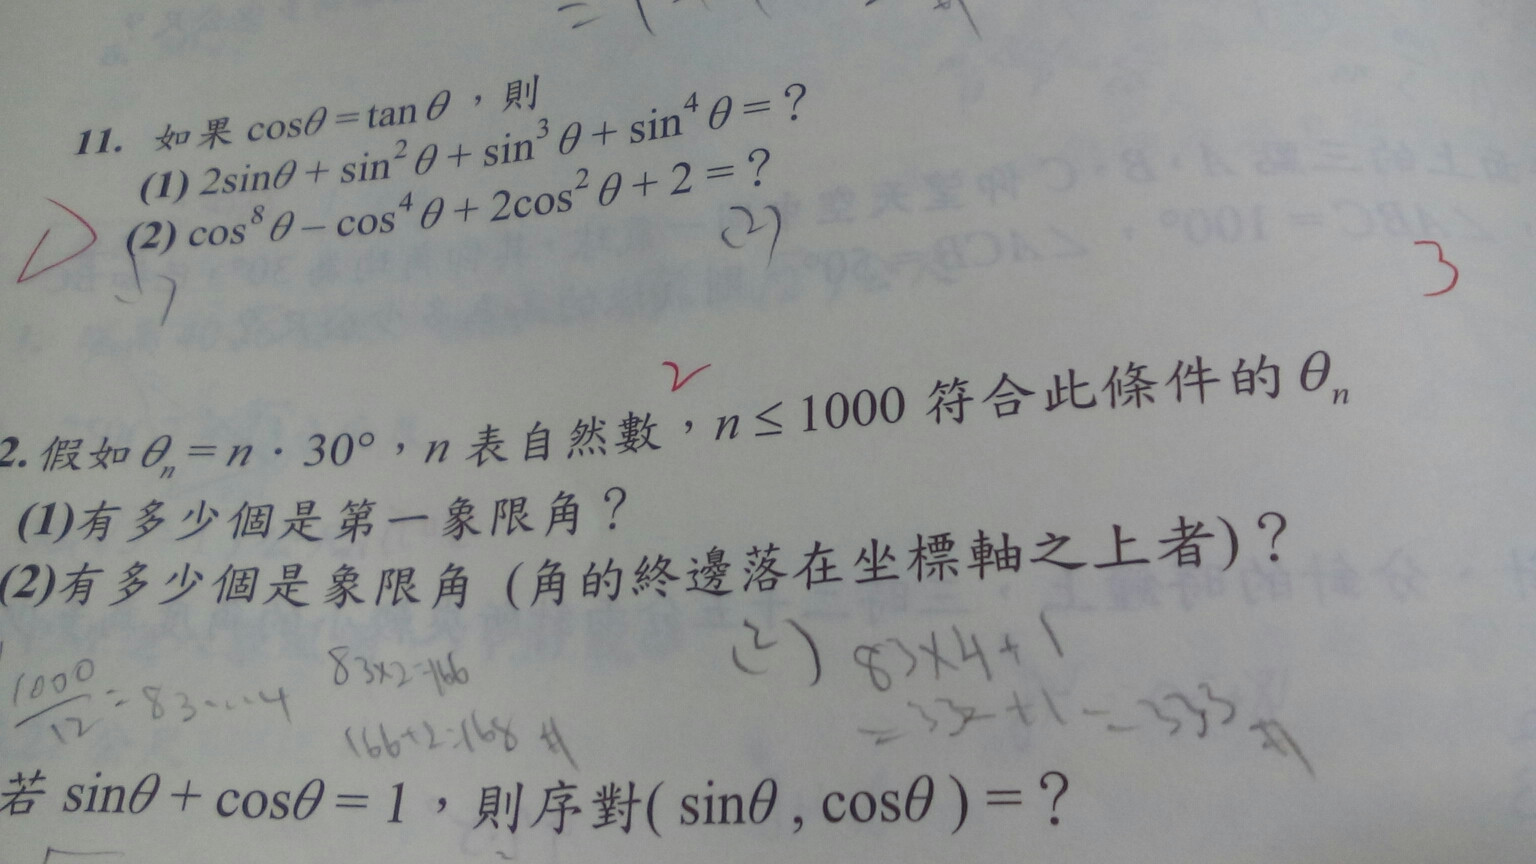 11. 如果 cosθ = tanθ，則
(1) 2sinθ + sin²θ + sin³θ + sin⁴θ = ?
(2) cos⁸θ − cos⁴θ + 2cos²θ + 2 = ?
(2)
3
2. 假如 θₙ = n · 30°，n 表自然數，n ≤ 1000 符合此條件的 θₙ
(1)有多少個是第一象限角？
(2)有多少個是象限角 (角的終邊落在坐標軸之上者)？
1000/12 = 83...4
83×2=166
166+2=168 #
(2) 83×4+1
= 332+1 = 333 #
若 sinθ + cosθ = 1，則序對( sinθ , cosθ ) = ?